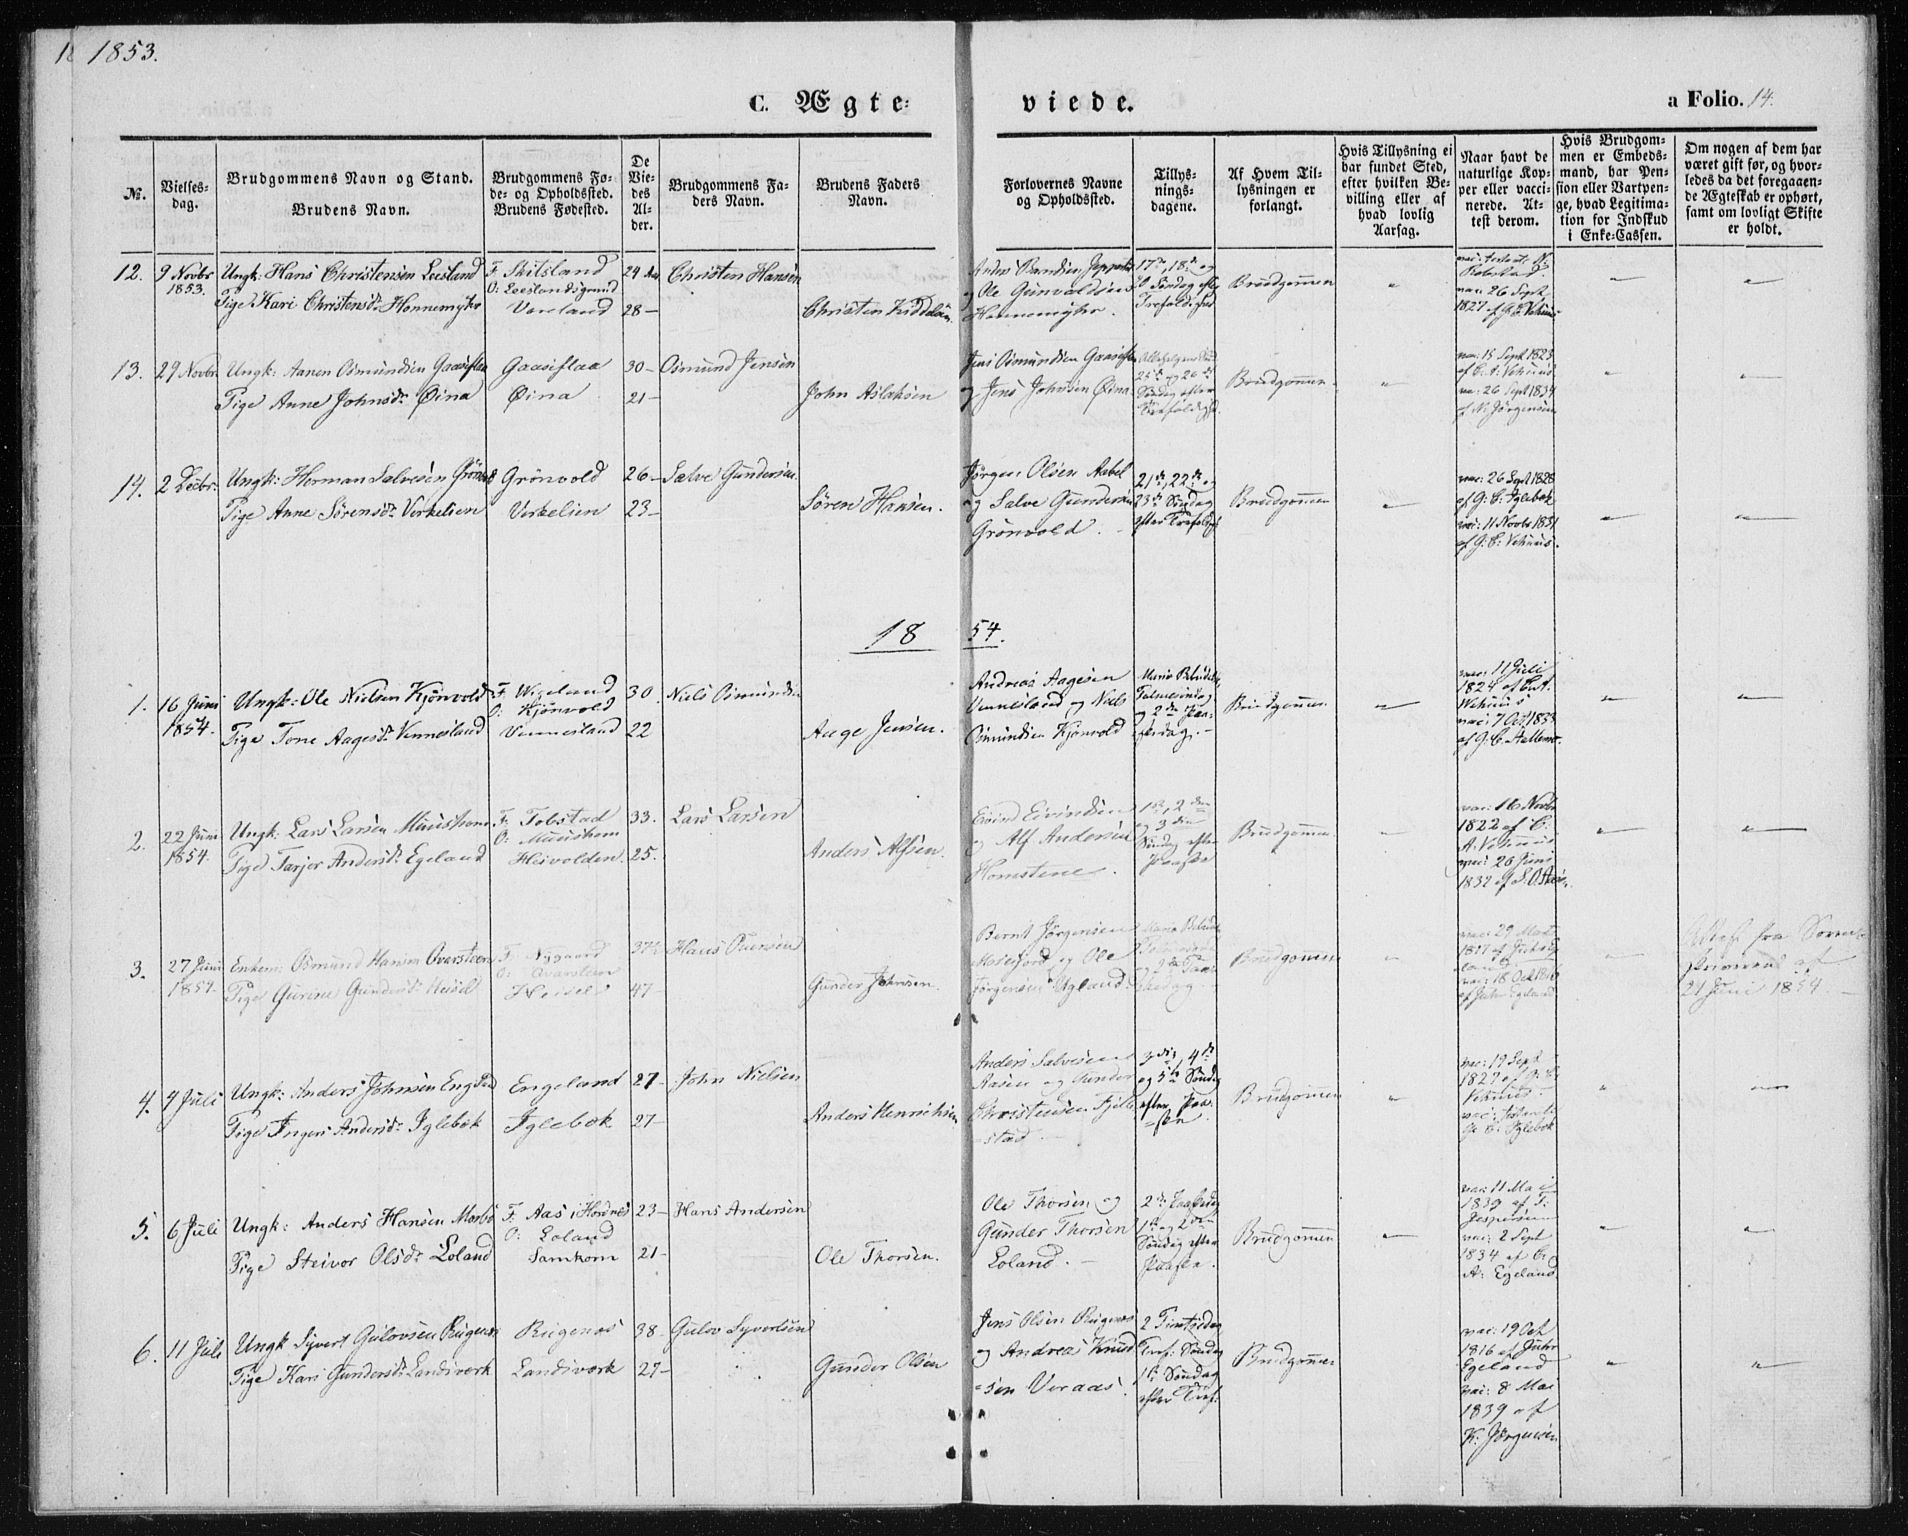 1853.
C. Ægte-
viede.
a Folio. 14.
№.
Vielses-
dag.
Brudgommens Navn og Stand.
Brudens Navn.
Brudgommens Fø-
de- og Opholdssted.
Brudens Fødested.
De
Vie-
des
Al-
der.
Brudgommens Fa-
ders Navn.
Brudens Faders
Navn.
Forlovernes Navne
og Opholdssted.
Tillys-
nings-
dagene.
Af Hvem Til-
lysningen er
forlangt.
Hvis Tillysning ei
har fundet Sted,
efter hvilken Be-
villing eller af
hvad lovlig
Aarsag.
Naar havt de
naturlige Kop-
per eller vacci-
nerede. At-
test derom.
Hvis Brudgom-
men er Embeds-
mand, har Pen-
sion eller Vartpen-
ge, hvad Legitima-
tion for Indskud
i Enke-Cassen.
Om nogen af dem har
været gift før, og hvor-
ledes da det foregaaen-
de Ægteskab er ophørt,
samt om lovligt Skifte
er holdt.
12.
9 Novbr
1853.
Ungk: Hans Christensen Leesland
Pige Kari Christensdr Honnemyhr
F: Skitsland
O: Leeslandsgrund
Vareland
24
28 —
Christen Hansen
Christen
og Ole Gunvaldsen
Honnemyhr.
17de, 18de og
Søndag efter
Trefoldighed
Brudgommen
vac: 26 Sept
1827 af
13.
29 Novbr.
Ungk: Aanen Osmundsen Gaasflaa
Pige Anne Johnsdr Øina
Gaasiflaa
Øina
30 —
21 —
Osmund Jensen
John Aslaksen
Jens Osmundsen Gaaseflaa
og Jens Johnsen Øina
25de og 26de
Søndag efter
Trefoldighd.
Brudgommen
vac: 15 Sept 1823
vac: 26 Sept 1834
af N. Jörgensen
14.
2 Decbr.
Ungk: Herman Salvesen Grönvold
Pige Anne Sørensdr Virkelien
Grönvold
Virkelien
26 —
23 —
Salve Gundersen
Sören Hansen.
Jörgen Olsen Aabel
og Salve Gundersen
Grönvold.
21de, 22de og
23de Søndag
efter Trefoldigh
Brudgommen
vac: 26 Sept 1828
af G: C: Iglebæk
vac: 11 Novbr 1831
af G: C: Vehuus.
18 54.
1.
16 Juni
1854.
Ungk: Ole Nielsen Kjönvold
Pige Tone Aagesdr Vennesland
F: Wigeland
O: Kjönvold
Vennesland
30
22
Niels Osmundsen
Aage Jensen.
Andreas Aagesen
Vennesland og Niels
Osmundsen Kjönvold
Maria Bebudelse,
Palmesöndag
og 2den Paa-
skedag. —
Brudgommen.
vac: 11 Juli
1824 af
Vehuus
vac: 7 Oct 1833
af G: C. Stallemo.
2.
22 Juni
1854.
Ungk: Lars Larsen Muushom
Pige Tarjer Andersdr Egeland
F: Tobstad
O: Muushom
Heivolden.
33.
25.
Lars Larsen
Anders Alfsen.
Eivind Eivindsen
og Alf Andersen
Homstene.
1ste, 2den
og 3die
Söndag efter
Paaske
Brudgommen
vac: 16 Novbr
1822 af C:
A. Vehuus
vac: 26 Juni
1832 af
3.
27 Juni
1854.
Enkem: Osmund Hansen Ovarsteen
Pige Gurine Gundersdr Heisel
F: Nygaard
O: Ovarsteen
Heisel
37½
47 —
Hans
Gunder Johnsen.
Bernt Jörgensen
og Ole
Jörgensen Ugland.
Maria Bebud
Brudgommen
vac: 29
1817 af
vac: 18 Oct
Egeland
Attest fra Soren-
skriveren af
21 Juni 1854. —
4.
4 Juli
Ungk: Anders Johnsen Engeland
Pige Inger Andersdr Iglebæk
Engeland
Iglebæk
27 —
27 —
John Nielsen
Anders Henriksen
Anders Salvesen
Aasen og Gunder
Christensen
-stad. —
3die, 4de
og 5te Söndag
efter Paa-
-ske.
Brudgommen
vac: 19 Sept
1827 af
Vehuus —
G: C: Iglebæk
5.
6 Juli
Ungk: Anders Hansen
Pige Steivor Olsdr Loland
F: Aas i Hordnes
O: Loland
Samkom
23 —
21 —
Hans Andersen
Ole Thorsen.
Ole Thorsen og
Gunder Thorsen
Loland. —
2den Paaskedag
1ste og 2den
Söndag efter
Paaske.
Brudgommen
vac: 11 Mai
1839 af T:
Jespersen
vac: 2 Sept
1834 af C:
A: Egeland
6.
11 Juli
Ungk Syvert Gulovsen Rugenes
Pige Kari Gundersdr Landiværk
Rugenes
Landiværk
38 —
27 —
Gulov Syvertsen
Gunder Olsen
Jens Olsen Rugenes
og Andreas Knud
-sen Veraas.
2 Pintsedag
Tref: Söndag
1ste Söndag
efter Tref:
Brudgommen
vac: 19 Oct
1816 af
Egeland
vac: 8 Mai
1839 af
K: Jörgensen